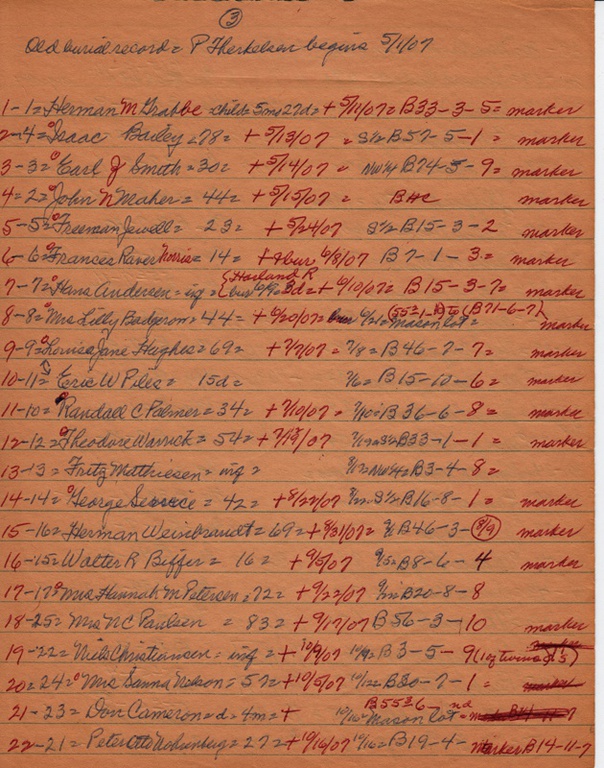 ③
Old burial record = P Therkelsen begins 5/1/07
1-1= Herman M Grabbe = child = 5m 27d = + 5/11/07 = B33-3-5 = marker
2-4= Isaac Bailey = 78 = + 5/13/07 = S½ B57-5-1 = marker
3-3= Earl J Smith = 30 = + 5/14/07 NW¼ B74-5-9 = marker
4=2= John N Maher = 44 = + 5/15/07 = B marker
5-5= Freeman Jewell = 23 = + 5/24/07 S½ B15-3-2 marker
6-6= Frances Raver Norris = 14 = + & bur 6/8/07 B7-1-3 = marker
Harland R
7-7= Hans Andersen = inf = bur 3d = + 6/10/07 = B15-3-7 = marker
8-8= Mrs Lilly Badgerow = 44 = + 6/20/07 = 6/21 = Mason lot = (B71-6-7) marker
9-9= Louisa Jane Hughes = 69 = + 7/7/07 = 7/8 = B46-7-7 = marker
10-11= Eric W Piles = 15d = 7/6 = B15-10-6 = marker
11-10= Randall C Palmer = 34 = + 7/10/07 = B36-6-8 = marker
12-12= Theodore Warrick = 54 = + 7/19/07 S½ B33-1-1 = marker
13-13= Fritz Matthiesen = inf = NW¼ = B3-4-8 =
14-14= George = 42 = + 8/22/07 S½ B16-8-1 = marker
15-16= Herman Weinbrandt = 69 = + 8/31/07 = B46-3-(8/9) marker
16-15= Walter R Biffer = 16 = + 9/5/07 B8-6-4 marker
17-17= Mrs Hannah M Petersen = 72 = + 9/22/07 B20-8-8
18-25= Mrs N C Paulsen = 83 = + 9/17/07 B56-3-10 marker
19-22= Nils Christiansen = inf = + 10/9/07 10/9 = B3-5-9 (1 of twins)
20=24= Mrs Sanna Nelson = 57 = + 10/5/07 B30-7-1 = marker
21-23= Don Cameron = d = 4m = + 10/16 Mason lot =
22-21= Peter Otto = 27 = + 10/16/07 10/16 = B19-4- marker B14-11-7